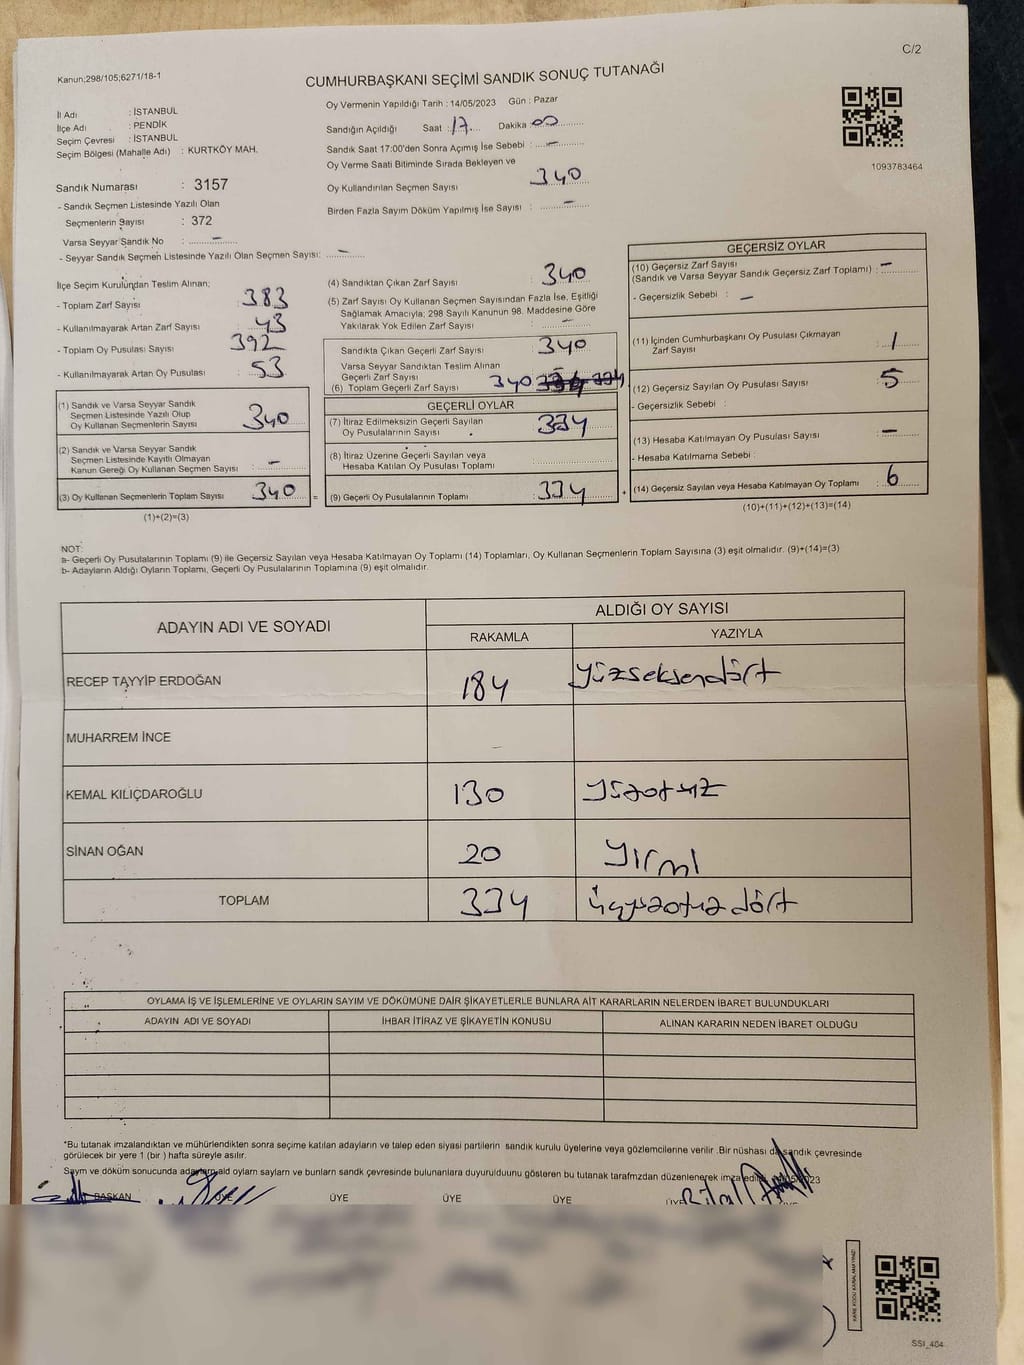 C/2
Kanun;298/105;6271/18-1
CUMHURBAŞKANI SEÇİMİ SANDIK SONUÇ TUTANAĞI
İl Adı : İSTANBUL
İlçe Adı : PENDİK
Seçim Çevresi : İSTANBUL
Seçim Bölgesi (Mahalle Adı) : KURTKÖY MAH.
Sandık Numarası : 3157
- Sandık Seçmen Listesinde Yazılı Olan
Seçmenlerin Sayısı : 372
Varsa Seyyar Sandık No : -
- Seyyar Sandık Seçmen Listesinde Yazılı Olan Seçmen Sayısı: -
Oy Vermenin Yapıldığı Tarih : 14/05/2023 Gün : Pazar
Sandığın Açıldığı Saat : 17 Dakika : 00
Sandık Saat 17:00'den Sonra Açımış İse Sebebi : -
Oy Verme Saati Bitiminde Sırada Bekleyen ve
Oy Kullandırılan Seçmen Sayısı 340
Birden Fazla Sayım Döküm Yapılmış İse Sayısı : -
1093783464
İlçe Seçim Kurulundan Teslim Alınan;
- Toplam Zarf Sayısı : 383
- Kullanılmayarak Artan Zarf Sayısı : 43
- Toplam Oy Pusulası Sayısı : 392
- Kullanılmayarak Artan Oy Pusulası : 53
(1) Sandık ve Varsa Seyyar Sandık
Seçmen Listesinde Yazılı Olup
Oy Kullanan Seçmenlerin Sayısı : 340
(2) Sandık ve Varsa Seyyar Sandık
Seçmen Listesinde Kayıtlı Olmayan
Kanun Gereği Oy Kullanan Seçmen Sayısı : -
(3) Oy Kullanan Seçmenlerin Toplam Sayısı : 340 =
(1)+(2)=(3)
(4) Sandıktan Çıkan Zarf Sayısı : 340
(5) Zarf Sayısı Oy Kullanan Seçmen Sayısından Fazla İse, Eşitliği
Sağlamak Amacıyla; 298 Sayılı Kanunun 98. Maddesine Göre
Yakılarak Yok Edilen Zarf Sayısı : -
Sandıkta Çıkan Geçerli Zarf Sayısı : 340
Varsa Seyyar Sandıktan Teslim Alınan
Geçerli Zarf Sayısı : -
(6) Toplam Geçerli Zarf Sayısı 340
GEÇERLİ OYLAR
(7) İtiraz Edilmeksizin Geçerli Sayılan
Oy Pusulalarının Sayısı : 334
(8) İtiraz Üzerine Geçerli Sayılan veya
Hesaba Katılan Oy Pusulası Toplamı :
(9) Geçerli Oy Pusulalarının Toplamı : 334 +
GEÇERSİZ OYLAR
(10) Geçersiz Zarf Sayısı
(Sandık ve Varsa Seyyar Sandık Geçersiz Zarf Toplamı) : -
- Geçersizlik Sebebi : -
(11) İçinden Cumhurbaşkanı Oy Pusulası Çıkmayan
Zarf Sayısı : 1
(12) Geçersiz Sayılan Oy Pusulası Sayısı : 5
- Geçersizlik Sebebi :
(13) Hesaba Katılmayan Oy Pusulası Sayısı : -
- Hesaba Katılmama Sebebi :
(14) Geçersiz Sayılan veya Hesaba Katılmayan Oy Toplamı : 6
(10)+(11)+(12)+(13)=(14)
NOT:
a- Geçerli Oy Pusulalarının Toplamı (9) ile Geçersiz Sayılan veya Hesaba Katılmayan Oy Toplamı (14) Toplamları, Oy Kullanan Seçmenlerin Toplam Sayısına (3) eşit olmalıdır. (9)+(14)=(3)
b- Adayların Aldığı Oyların Toplamı, Geçerli Oy Pusulalarının Toplamına (9) eşit olmalıdır.
ADAYIN ADI VE SOYADI
ALDIĞI OY SAYISI
RAKAMLA YAZIYLA
RECEP TAYYİP ERDOĞAN 184 yüzseksendört
MUHARREM İNCE -
KEMAL KILIÇDAROĞLU 130 yüzotuz
SİNAN OĞAN 20 yirmi
TOPLAM 334 üçyüzotuzdört
OYLAMA İŞ VE İŞLEMLERİNE VE OYLARIN SAYIM VE DÖKÜMÜNE DAİR ŞİKAYETLERLE BUNLARA AİT KARARLARIN NELERDEN İBARET BULUNDUKLARI
ADAYIN ADI VE SOYADI İHBAR İTİRAZ VE ŞİKAYETİN KONUSU ALINAN KARARIN NEDEN İBARET OLDUĞU
*Bu tutanak imzalandıktan ve mühürlendikten sonra seçime katılan adayların ve talep eden siyasi partilerin sandık kurulu üyelerine veya gözlemcilerine verilir .Bir nüshası da sandık çevresinde
görülecek bir yere 1 (bir ) hafta süreyle asılır.
Sayım ve döküm sonucunda adayların aldı oyların sayıların ve bunların sandk çevresinde bulunanlara duyurulduunu gösteren bu tutanak tarafmzdan düzenlenerek imza edildi.
BAŞKAN ÜYE ÜYE ÜYE ÜYE ÜYE
KARE KODU KARALAMAYINIZ!
SSI_404